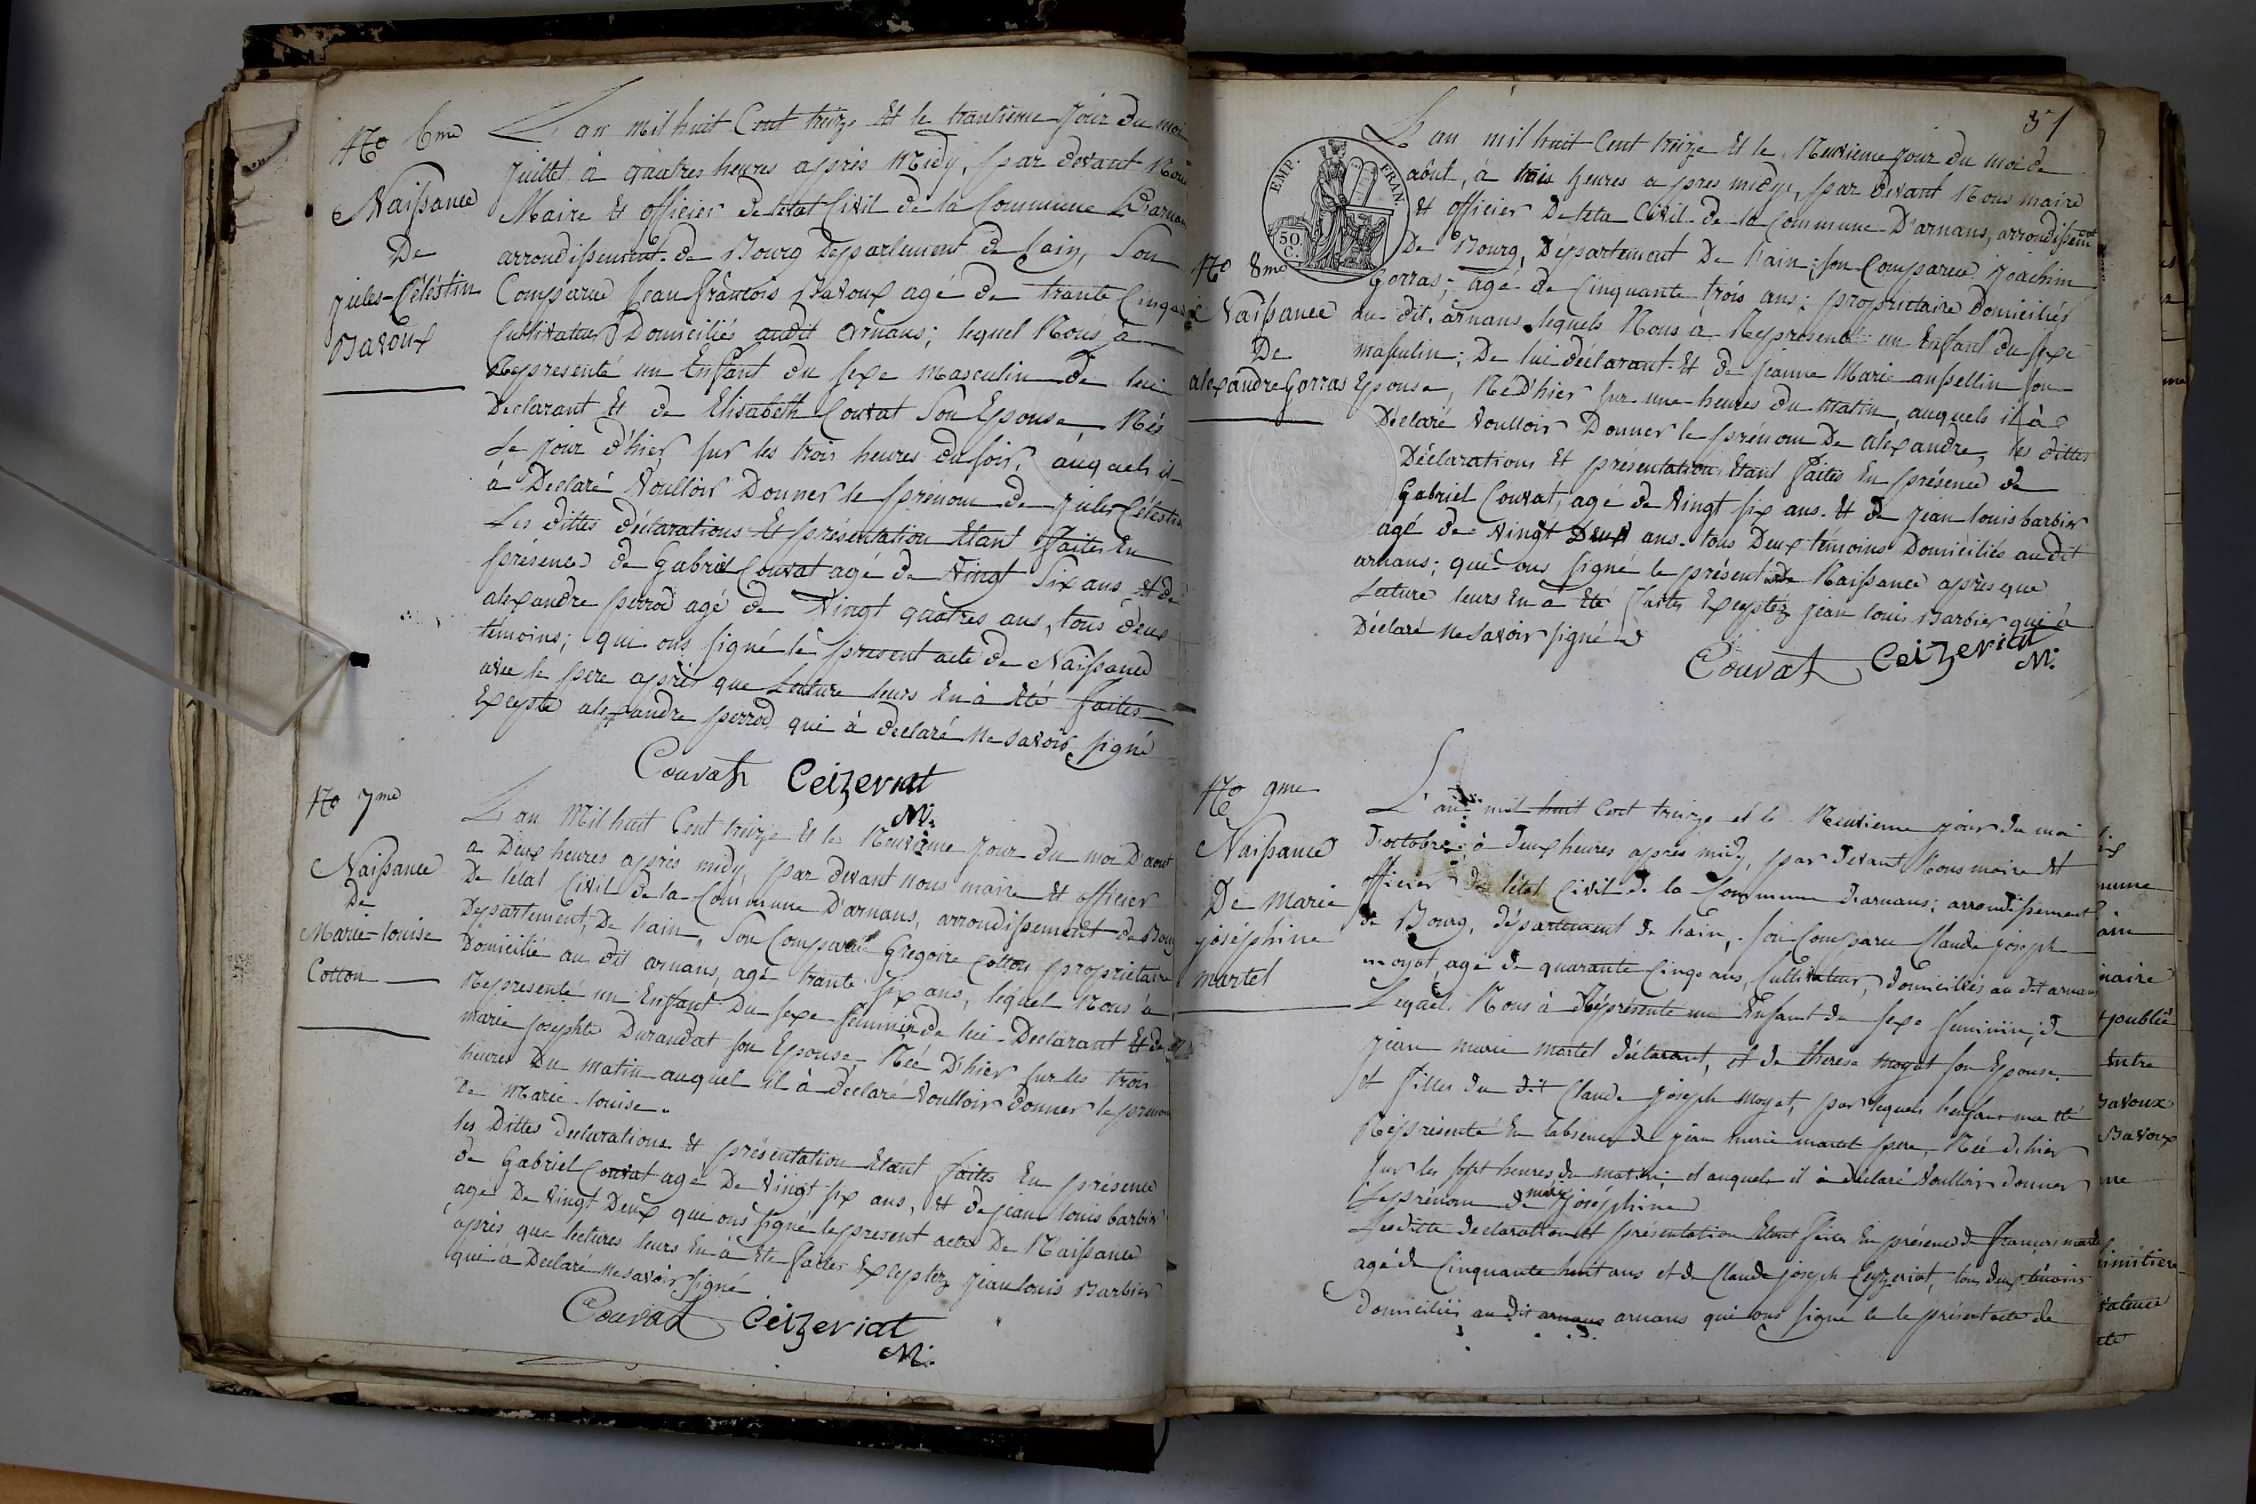 No 6me
Naissance
De
jules-Célestin
Bavoux
L'an mil huit Cent treize Et le trantième jour du moi
juillet à quatres heures après Midy, par devant Nous
Maire Et officier de letat Civil de la Commune D'arnans
arrondissement de Bourg Departement de Lain, Son
Comparue jean françois Bavoux agé de trante Cinq ans
Cultivateur Domiciliés audit arnans; lequel Nous à
Representé un Enfant du sexe masculin de lui
Declarant Et de Elisabeth Couvat Son Epouse, Nés
Le jour d'hier, sur les trois heures du soir, auquels il
à Declaré Voulloir Donner le prénom de jules Célestin
Les dittes déclarations Et présentation Etant faites En
présence de Gabriel Couvat agé de Vingt Six ans Et de
alexandre perrod agé de Vingt quatres ans, tous deux
témoins; qui ons signé le present acte de Naissance
avec le pere après que Lecture leurs En à Eté faites
Excepté alexandre perrod qui à declaré ne savoir signé
Couvat Ceizeriat
M.
No 7me
Naissance
De
Marie-louise
Cotton
L'an Mil huit Cent treize Et le Neuvième jour du moi D'aout
a Deux heures après midy, par devant nous maire Et officier
De letat Civil de la Commune D'arnans, arrondissement de Bourg
Departement De Lain, Son Comparue Gregoire Cotton propriétaire
Domicilié au dit arnans, agé trante six ans, lequel Nous à
Representé un Enfant Du sexe feminin de lui Declarant Et de
marie josephte Durandat son Epouse, Née D'hier sur les trois
heures Du matin auquel il à declaré Voulloir donner le prénom
De Marie-louise.
les Dittes declarations Et présentation Etant faites En présence
de Gabriel Couvat agé De Vingt six ans, Et de jean louis barbier
agé De Vingt Deux qui ons signé le present acte De Naissance
après que lectures leurs En à Eté faites Exceptez jean louis Barbier
qui à Declaré ne savoir signé
Couvat Ceizeriat
M.
37
EMP. FRAN.
50
C.
No 8me
Naissance
De
alexandre Gorras
L'an mil huit Cent treize Et le Neuvieme jour du moi de
aout, à trois heures apres midy, par Devant Nous maire
Et officier De leta Civil de la Commune D'arnans, arrondissement
De Bourg, Département De Lain; son Comparue joachim
Gorras; agé de Cinquante trois ans; propriétaire Domiciliés
au dit arnans lequels Nous à Representé un Enfant du sexe
masculin; De lui déclarant Et de jeanne Marie ausellin son
Epouse, Né D'hier sur une heures du Matin, auquels il à
Déclaré Voulloir Donner le prénom De alexandre, les dittes
Déclarations Et présentation Etant faites En présence de
Gabriel Couvat, agé de Vingt six ans Et de jean louis barbier
agé de Vingt Deux ans tous Deux temoins Domiciliés audit
arnans; qui ons signé le présent acte Naissance après que
Lecture leurs En à Eté faites Exceptéz jean louis Barbier qui à
Déclaré ne savoir signé
Couvat Ceizeriat
M.
No 9me
Naissance
De Marie
joséphine
martel
L'an mil huit Cent treize et le Neuvieme jour du moi
d'octobre; à deux heures après midy, par devant Nous maire Et
officier de létat Civil de la Commune d'arnans; arrondissement
de Bourg, département de Lain, son Comparu Claude joseph
moyat, agé de quarante Cinqs ans, Cultivateur, domiciliés au dit arnans
Lequel Nous à Représenté un Enfant du sexe feminin, de
jean marie martel déclarant, et de therese moyat son Epouse.
et filles du dit Claude joseph moyat, par lequels lenfant ma été
Représenté En labsence de jean marie martel pere, Née dhier
sur les sept heures du matin, et auquels il à déclaré Voulloir donner
Le prénom de marie joséphine
Lesditte declaration Et présentation Etant faites En présence de françois martel
agé de Cinquante huit ans et de Claude joseph Ceyzeriat, tous deux témoins
domiciliés au dit arnans arnans qui ons signé le le présent acte de